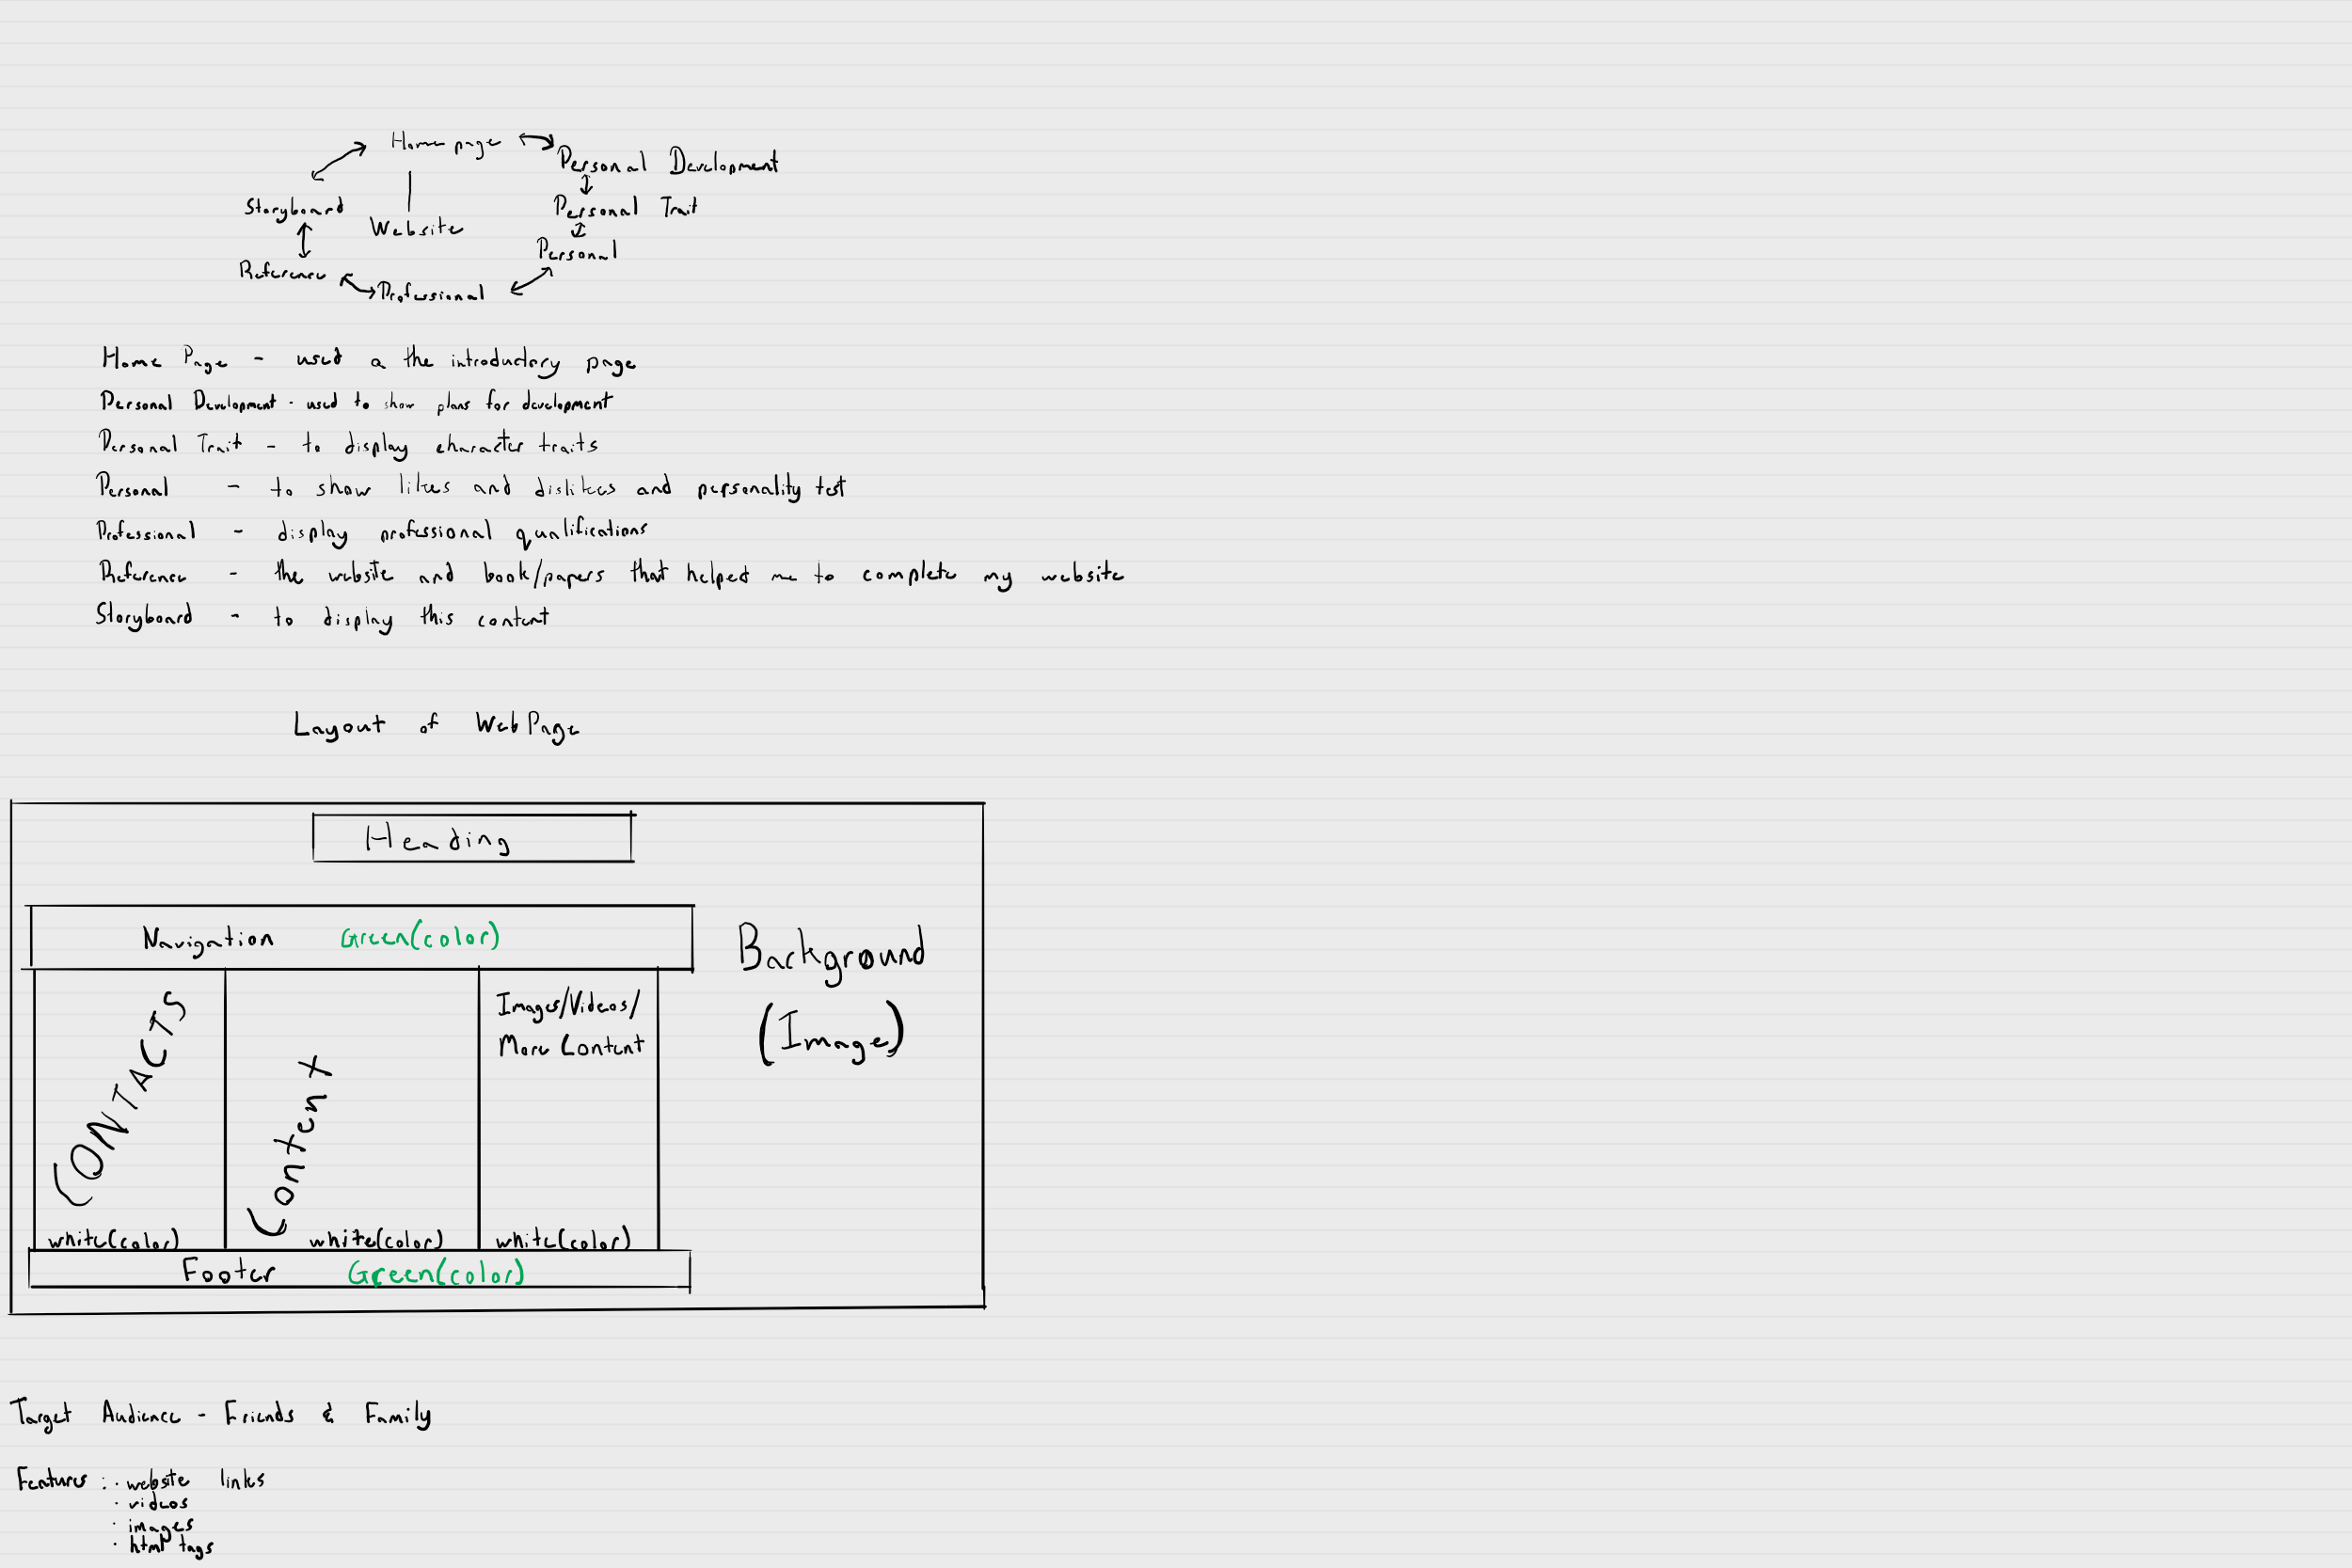 Home page
Personal Development
Storyboard
Personal Trait
Website
Personal
Reference
Professional
Home Page - used a the introductory page
Personal Development - used to show plans for development
Personal Trait - to display character traits
Personal - to show likes and dislikes and personality test
Professional - display professional qualifications
Reference - the website and book/papers that helped me to complete my website
Storyboard - to display this content
Layout of WebPage
Heading
Navigation Green(color)
Background
(Image)
CONTACTS
Content
Images/Videos/
More Content
white(color)
white(color)
white(color)
Footer Green(color)
Target Audience - Friends & Family
Features : · website links
· videos
· images
· html tags